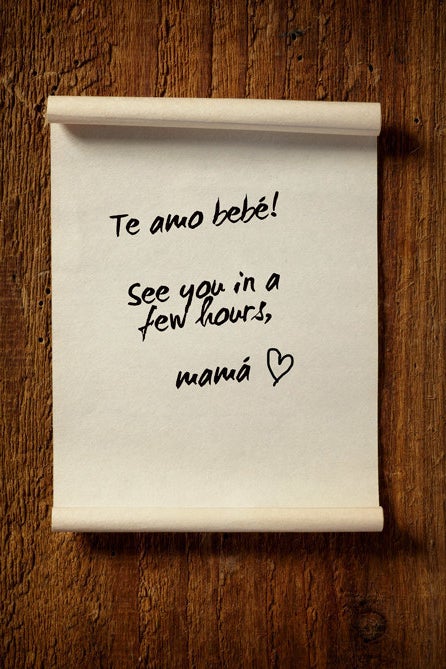 Te amo bebé!
See you in a
few hours,
mamá ♡